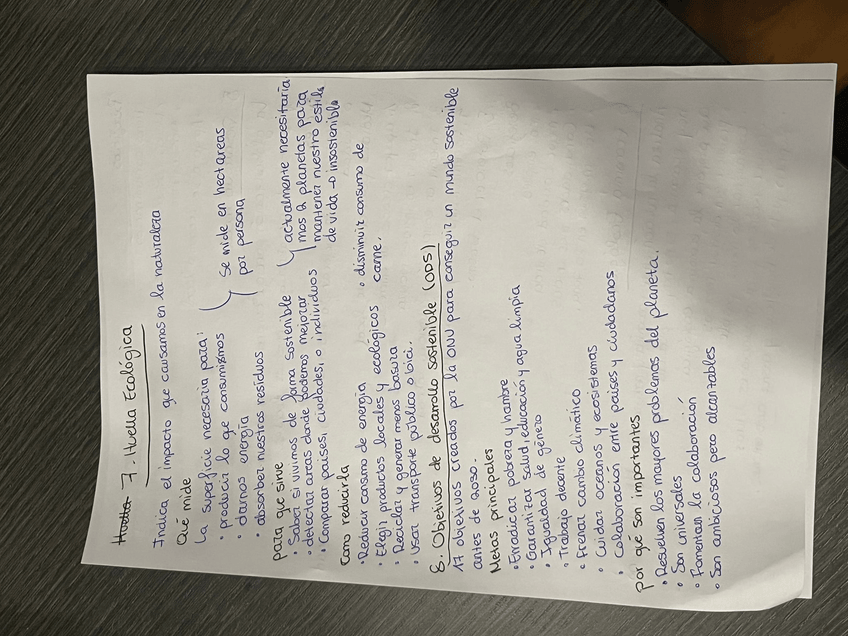 7. Huella Ecológica
Indica el impacto que causamos en la naturaleza
Qué mide
La superficie necesaria para:
• producir lo que consumimos
• darnos energía
• absorber nuestros residuos
Se mide en hectareas
por persona
para que sirve
• Saber si vivimos de forma sostenible
• detectar areas donde podemos mejorar
• Comparar países, ciudades, o individuos
actualmente necesitaria
mos 2 planetas para
mantener nuestro estilo
de vida → insostenible
Como reducirla
• Reducir consumo de energia
• Elegir productos locales y ecológicos
• Reciclar y generar menos basura
• Usar transporte público o bici.
• disminuir consumo de
carne.
8. Objetivos de desarrollo sostenible (ODS)
17 objetivos creados por la ONU para conseguir un mundo sostenible
antes de 2030.
Metas principales
• Erradicar pobreza y hambre
• Garantizar salud, educación y agua limpia
• Igualdad de género
• Trabajo decente
• Frenar cambio climático
• Cuidar oceanos y ecosistemas
• Colaboración entre países y ciudadanos
por que son importantes
• Resuelven los mayores problemas del planeta.
• Son universales
• Fomentan la colaboración
• Son ambiciosos pero alcanzables